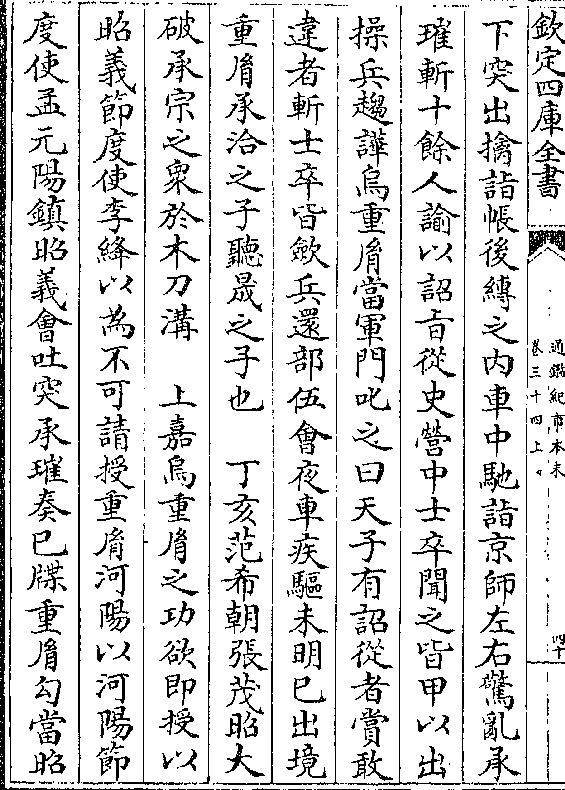 欽定四庫全書
通鑑紀事本末
卷三十四上
四十
下突出擒詣帳後縛之内車中馳詣京師左右驚亂承
璀斬十餘人諭以詔旨從史營中士卒聞之皆甲以出
操兵趨譁烏重胤當軍門叱之曰天子有詔從者賞敢
違者斬士卒皆斂兵還部伍會夜車疾驅未明已出境
重胤承洽之子聽晟之子也　丁亥范希朝張茂昭大
破承宗之衆於木刀溝　上嘉烏重胤之功欲即授以
昭義節度使李絳以為不可請授重胤河陽以河陽節
度使孟元陽鎮昭義會吐突承璀奏已牒重胤勾當昭